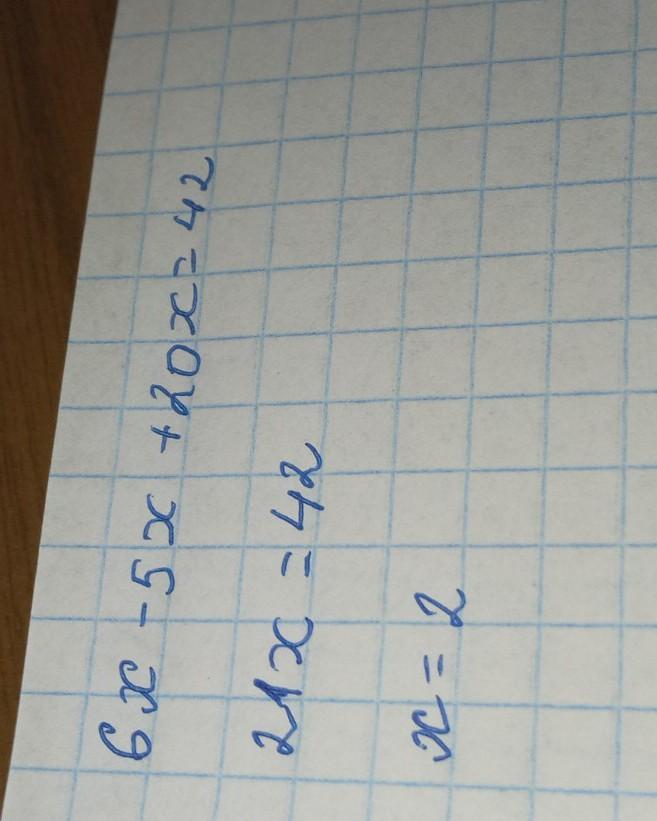 6x - 5x + 20x = 42
21x = 42
x = 2